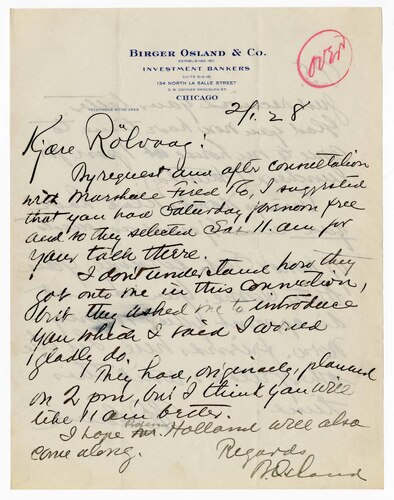 BIRGER OSLAND & CO.
ESTABLISHED 1911
INVESTMENT BANKERS
SUITE
134 NORTH LA SALLE STREET
S. W. CORNER RANDOLPH ST.
CHICAGO
TELEPHONE
OVER
2/1. 28
Kjære Rölvaag:
By request and after consultation
with Marshall Field & Co, I suggested
that you had Saturday forenoon free
and so they selected Sat 11. am for
your talk there.
I don't understand how they
got onto me in this connection,
but they asked me to introduce
you which I said I would
gladly do.
They had, originally, planned
on 2 pm, but I think you will
like 11 am better.
Professor
I hope Mr. Holland will also
come along.
Regards
B. Osland